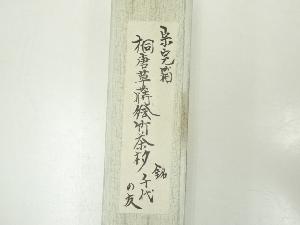 桐唐草蒔絵竹茶杓
銘
千代
の友